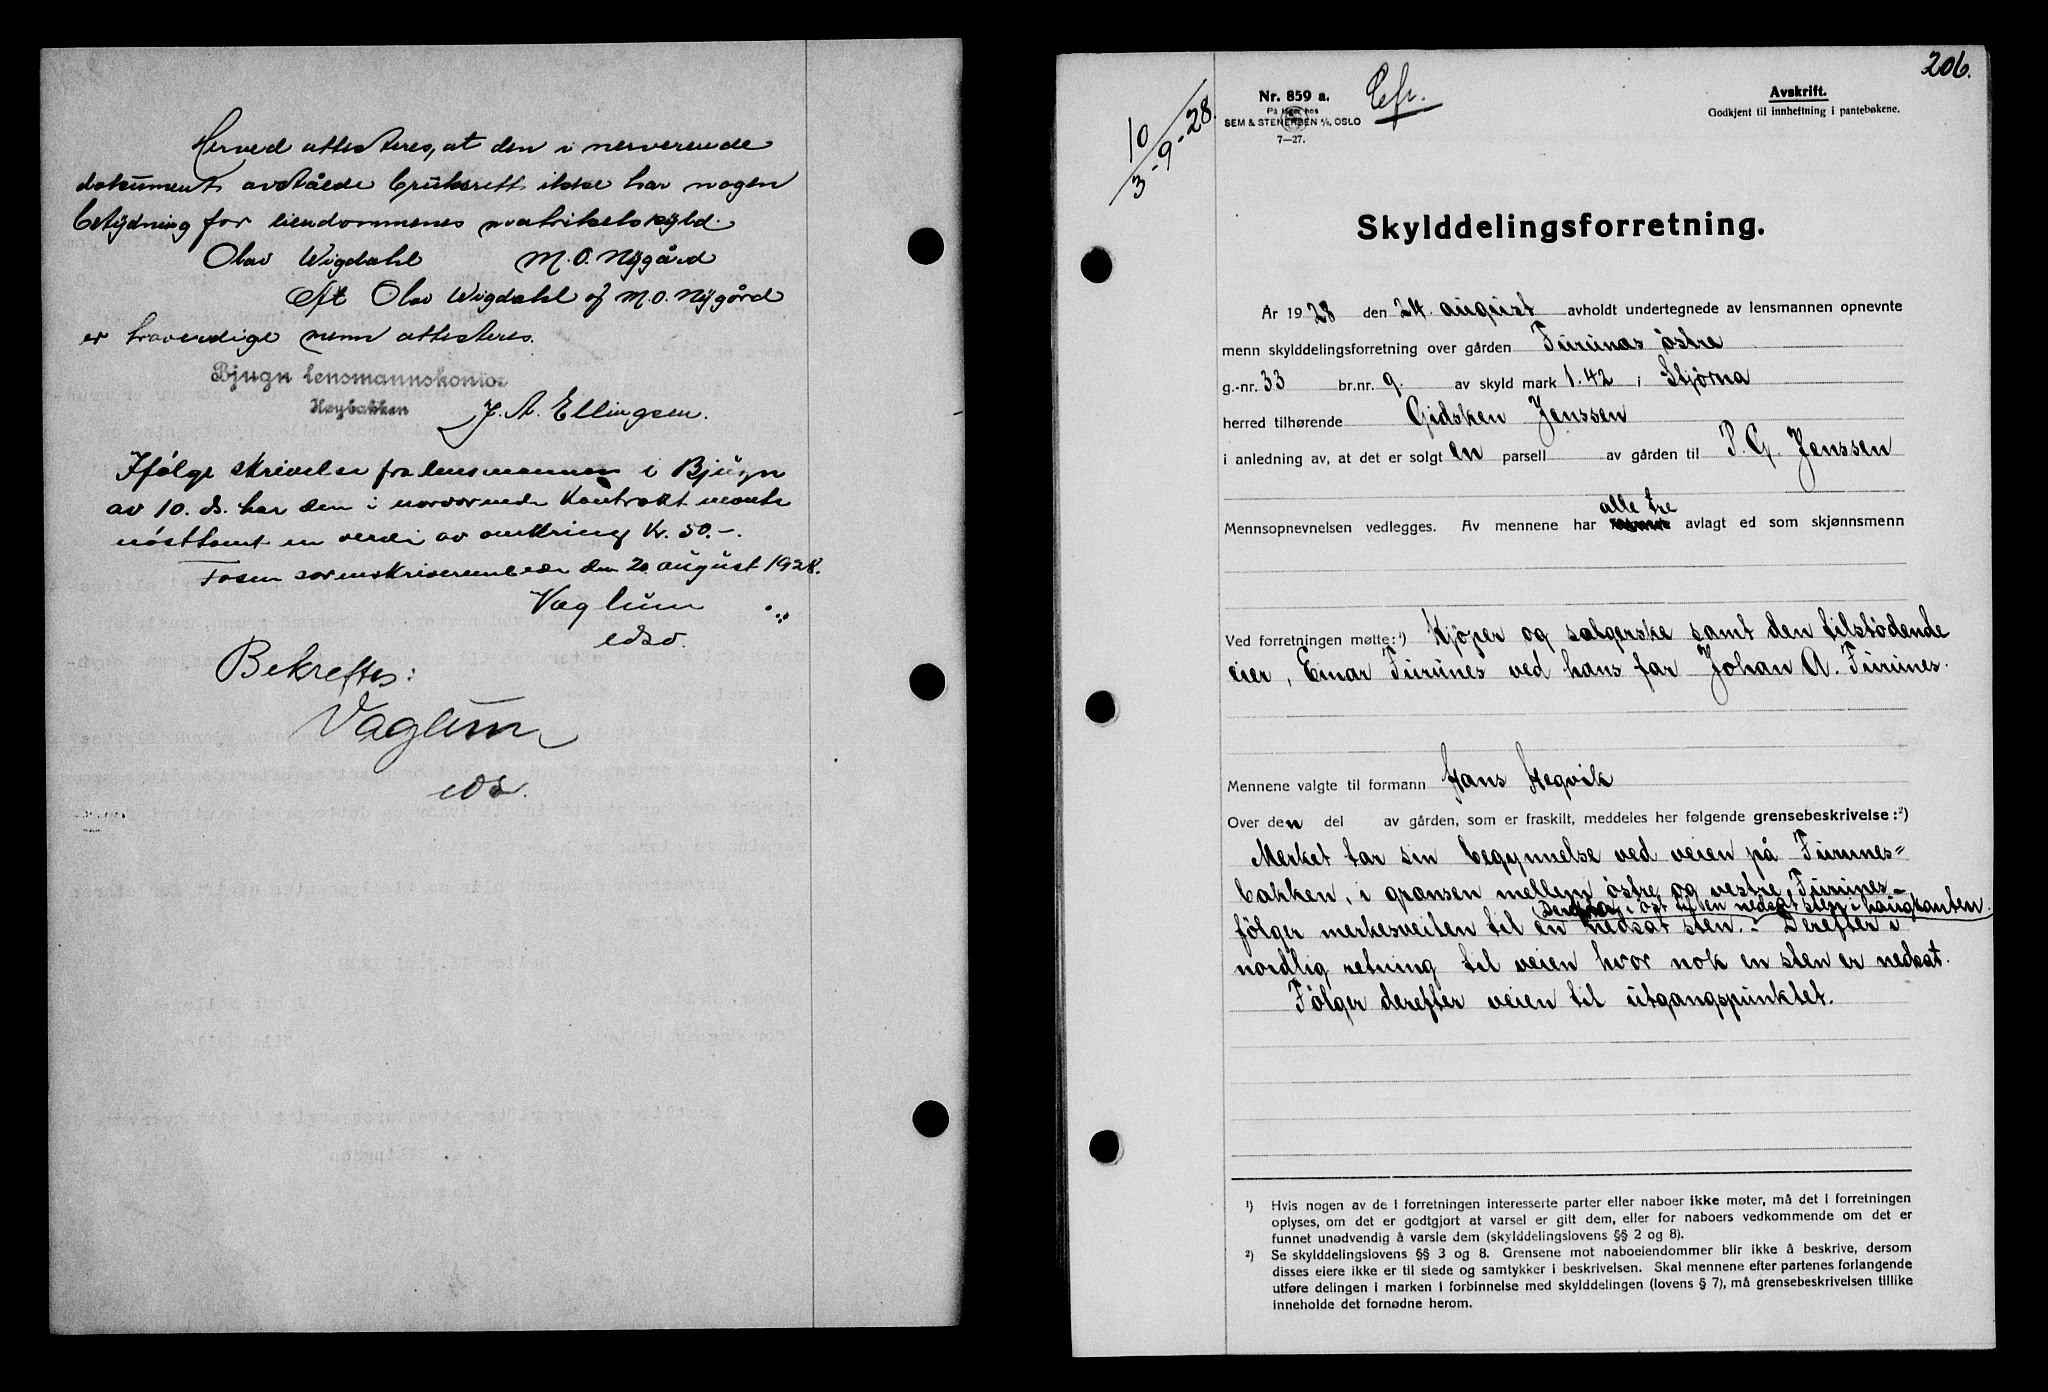 Herved attesteres, at den i nerverende
dokument avståede bruksrett ikke har nogen
betydning for eiendommenes matrikelskyld.
Olav Wigdahl M. O. Nygård
At Olav Wigdahl og M. O. Nygård
er troverdige menn attesteres.
Bjugn lensmannskontor
Høybakken
J. A. Ellingsen.
Ifølge skrivelse fra lensmannen i Bjugn
av 10. ds. har den i nærværende kontrakt nevnte
nøsttomt en verdi av omkring kr. 50.-.
Fosen sorenskriverembede den 20. august 1928.
Vaglum
edsv.
Bekreftes:
Vaglum
eds.
206.
10/3-9-28.
Nr. 859 a.
På lager hos
SEM & STENERSEN A/S, OSLO
7—27.
Avskrift.
Godkjent til innheftning i pantebøkene.
Skylddelingsforretning.
År 1928 den 24. august avholdt undertegnede av lensmannen opnevnte
menn skylddelingsforretning over gården Furunes østre
g.-nr. 33 br.nr. 9. av skyld mark 1.42 i Stjørna
herred tilhørende Gidsken Jenssen
i anledning av, at det er solgt en parsell av gården til P. G. Jenssen
alle tre
Mennsopnevnelsen vedlegges. Av mennene har avlagt ed som skjønnsmenn
Ved forretningen møtte: ¹) Kjøper og sælgerske samt den tilstødende
eier, Einar Furunes ved hans far Johan A. Furunes.
Mennene valgte til formann Hans Hegvik
Over den del av gården, som er fraskilt, meddeles her følgende grensebeskrivelse: ²)
Merket tar sin begynnelse ved veien på Furunes=
bakken, i grænsen mellem østre og vestre Furunes –
i øst til en nedsat sten i haugkanten.
følger merkesveiten til en nedsat sten. – Derefter i
nordlig retning til veien hvor nok en sten er nedsat.
Følger derefter veien til utgangspunktet.
¹) Hvis nogen av de i forretningen interesserte parter eller naboer ikke møter, må det i forretningen
oplyses, om det er godtgjort at varsel er gitt dem, eller for naboers vedkommende om det er
funnet unødvendig å varsle dem (skylddelingslovens §§ 2 og 8).
²) Se skylddelingslovens §§ 3 og 8. Grensene mot naboeiendommer blir ikke å beskrive, dersom
disses eiere ikke er til stede og samtykker i beskrivelsen. Skal mennene efter partenes forlangende
utføre delingen i marken i forbinnelse med skylddelingen (lovens § 7), må grensebeskrivelsen tillike
inneholde det fornødne herom.